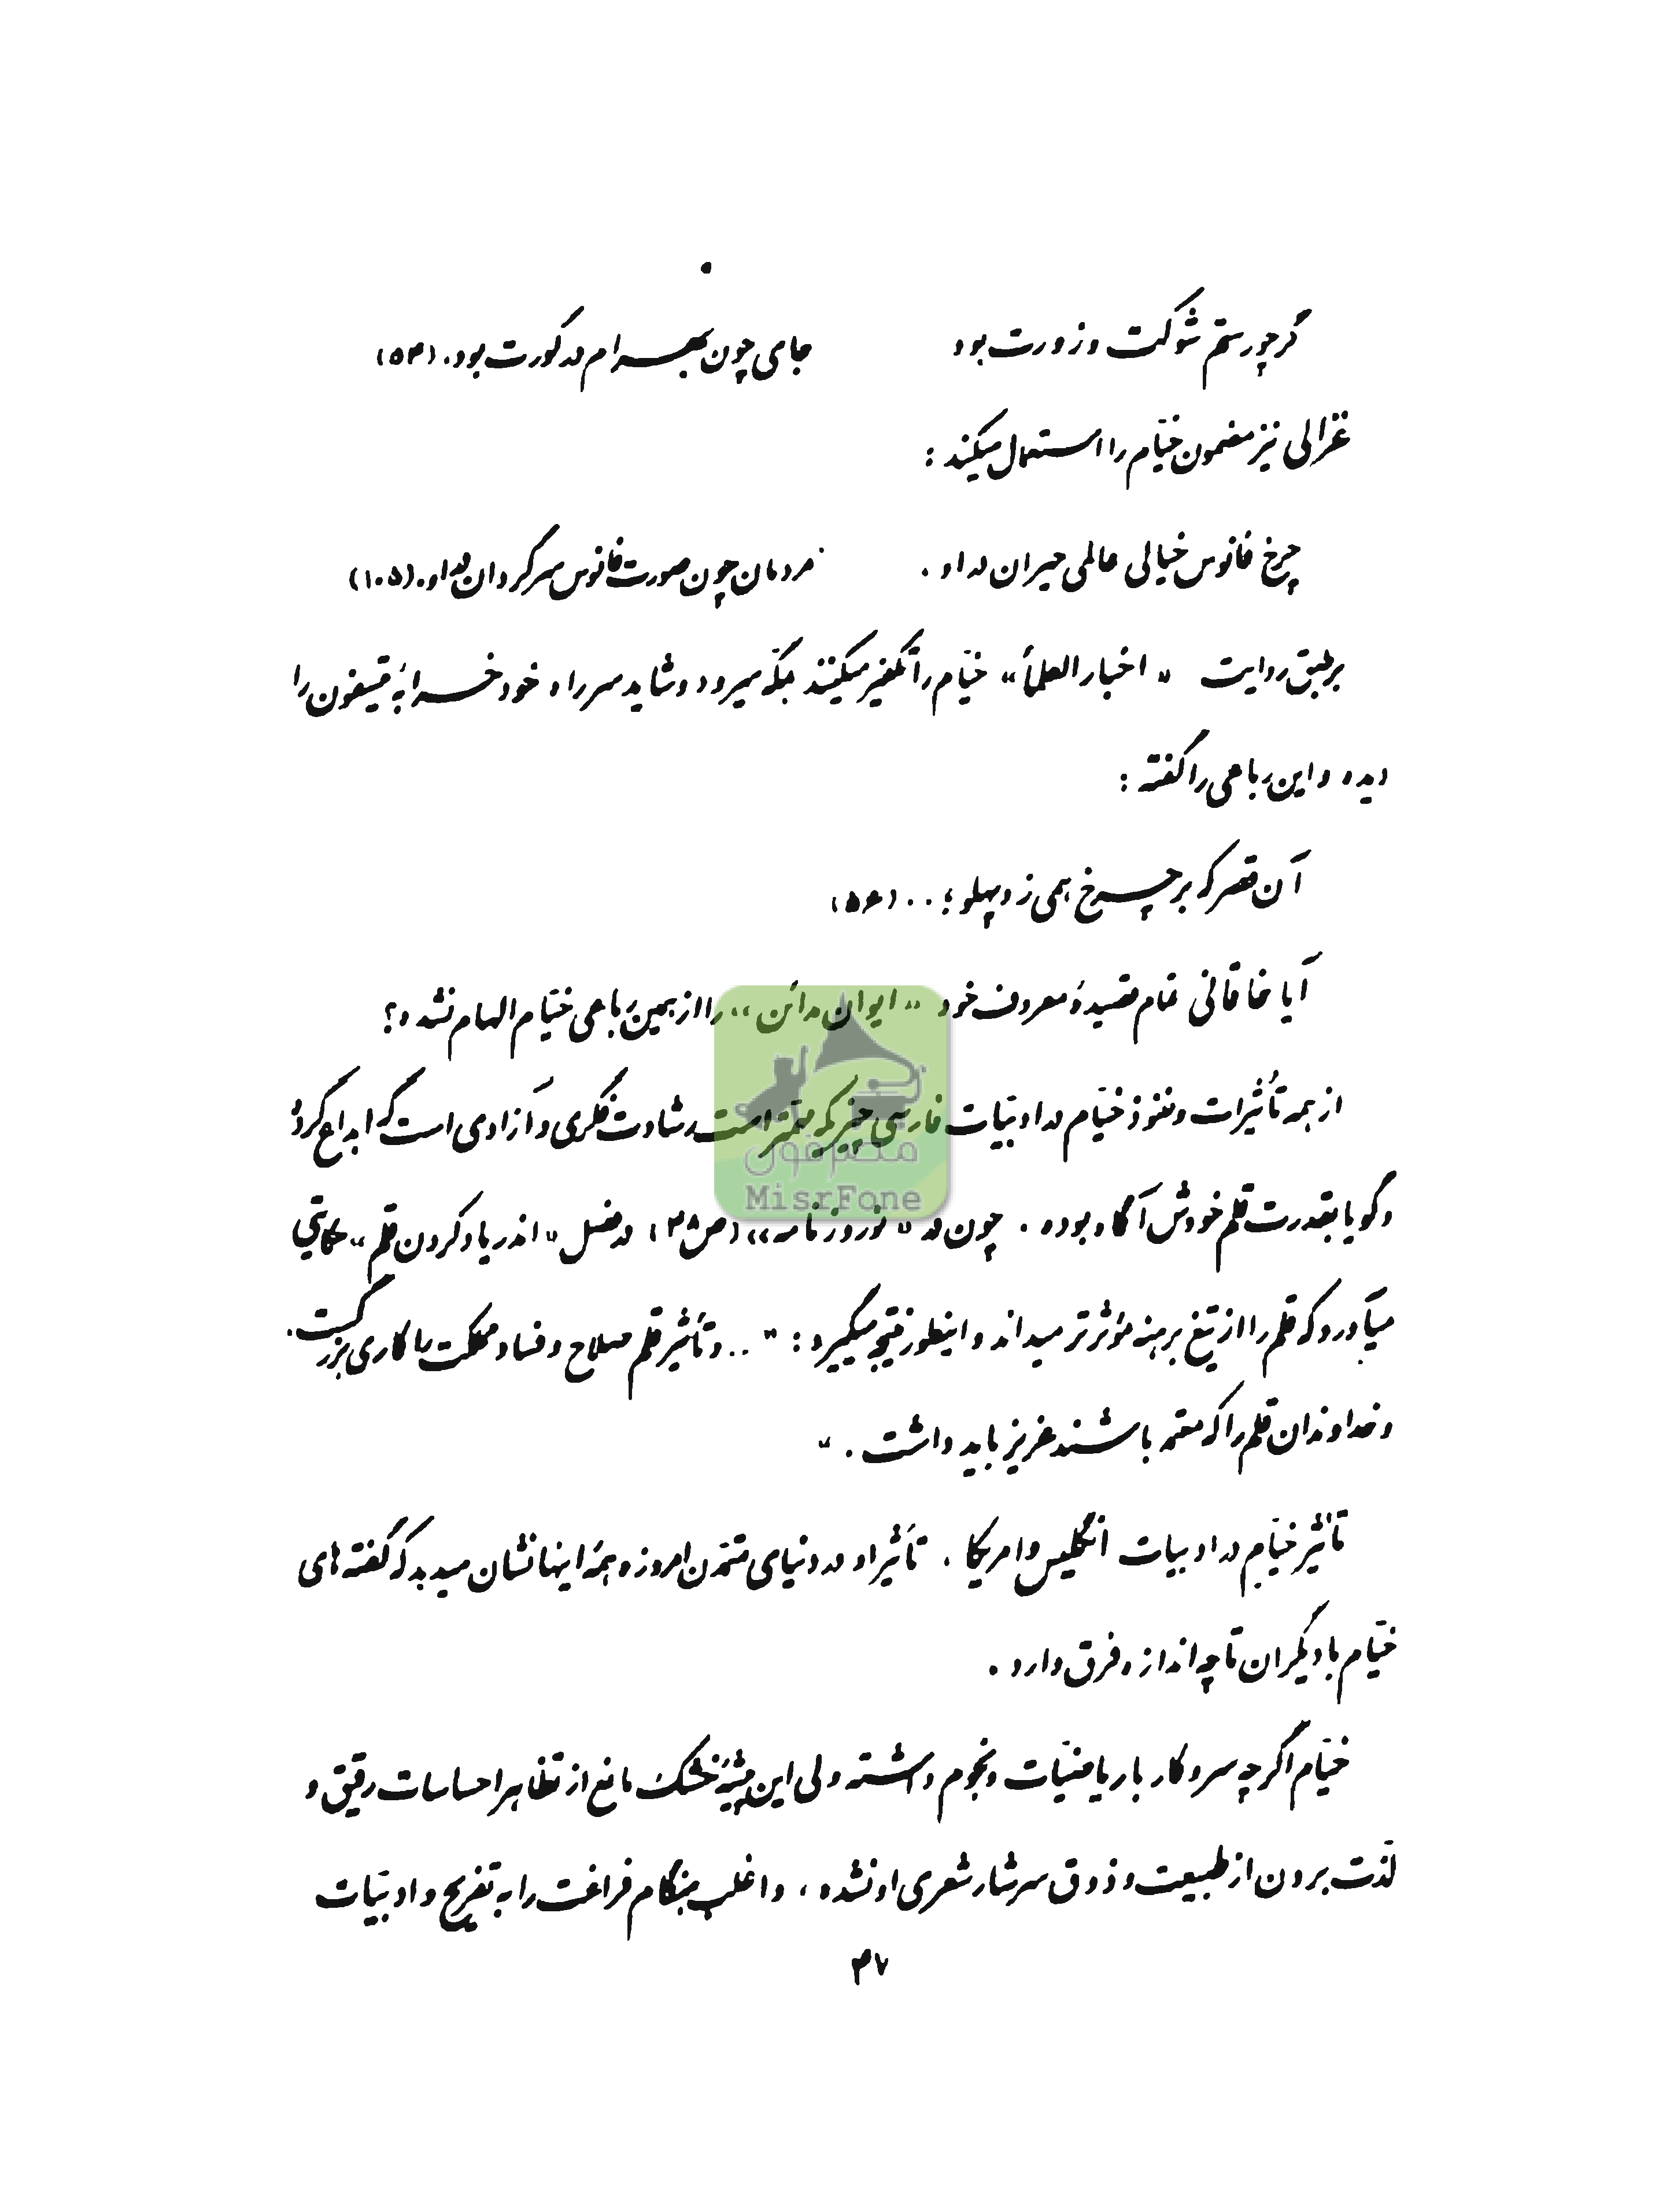 گر چو رستم شوکت و زورت بود جای چون بهرام در گورت بود. (۵۴)
غزالی نیز مضمون خیّام را استعمال میکند :
چرخ فانوس خیالی عالمی حیران در او . مردمان چون صورت فانوس سرگردان در او. (۱۰۵)
بر طبق روایت « اخبار العلمأ » خیّام را تکفیر میکنند بمکّه میرود و شاید سر راه خود خرابهٔ تیسفون را
دیده و این رباعی را گفته :
آن قصر که بر چرخ همی زد پهلو ؛ . . (۵۶)
آیا خاقانی تمام قصیدهٔ معروف خود « ایوان مدائن » را از همین رباعی خیّام الهام نشده ؟
از همه تأثیرات و نفوذ خیّام در ادبیّات فارسی چیزیکه مهمّتر است رشادت فکری و آزادی است که ابداع کرده
و گویا بقدرت قلم خودش آگاه بوده . چون در « نوروزنامه » (ص ۴۸) در فصل « اندر یاد کردن قلم » حکایتی
میآورد که قلم را از تیغ برهنه مؤثرتر میداند و اینطور نتیجه میگیرد : « . . و تأثیر قلم صلاح و فساد مملکت را کاری بزرگست .
و خداوندان قلم را که معتمد باشند عزیز باید داشت . »
تأثیر خیّام در ادبیات انگلیس و امریکا ، تأثیر او در دنیای متمّدن امروزه همهٔ اینها نشان میدهد که گفته های
خیّام با دیگران تا چه اندازه فرق دارد .
خیّام اگرچه سر و کار با ریاضیّات و نجوم داشته ولی این پیشهٔ خشک مانع از تظاهر احساسات رقیق و
لذّت بردن از طبیعت و ذوق سرشار شعری او نشده ، و اغلب هنگام فراغت را به تفریح و ادبیّات
۴۷
مصرفون
MisrFone